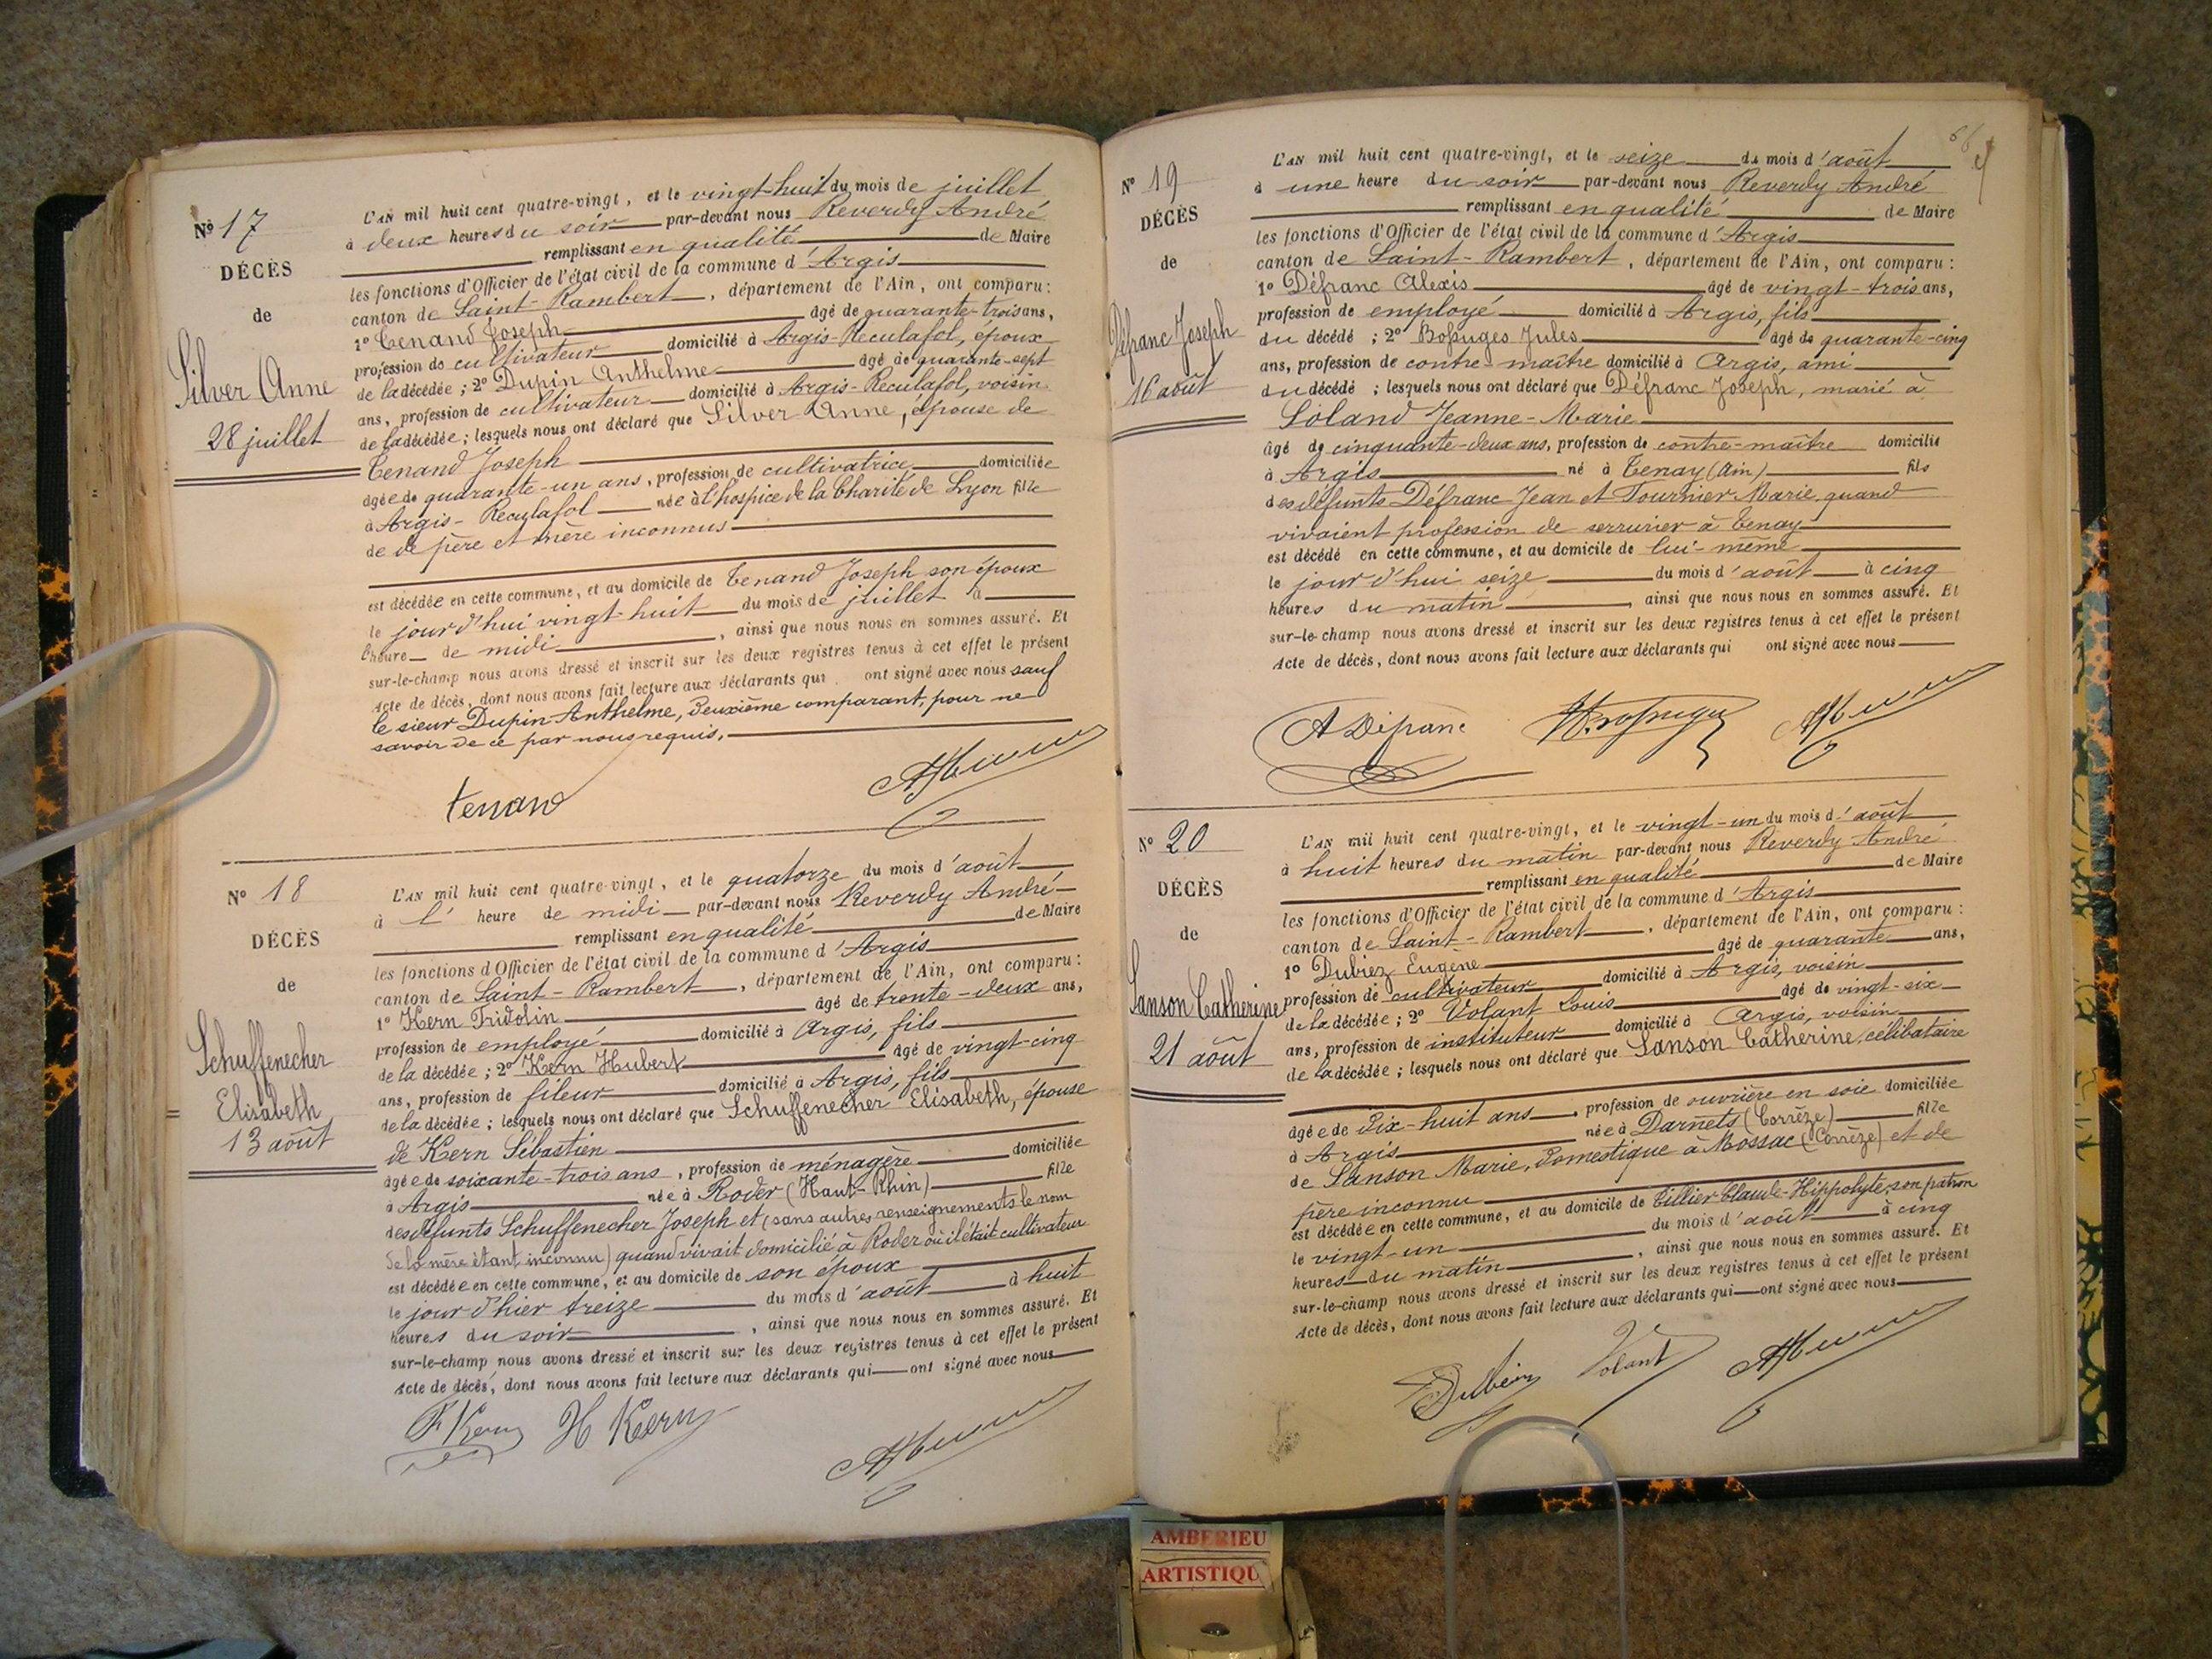 N° 17
DÉCÈS
de
Silver Anne
28 juillet
L'AN mil huit cent quatre-vingt, et le vingt-huit du mois de juillet
à deux heures du soir par-devant nous Reverdy André
remplissant en qualité de Maire
les fonctions d'Officier de l'état civil de la commune d'Argis
canton de Saint-Rambert, département de l'Ain, ont comparu :
1° Tenand Joseph âgé de quarante-trois ans,
profession de cultivateur domicilié à Argis-Reculafol, époux
de la décédée ; 2° Dupin Anthelme âgé de quarante-sept
ans, profession de cultivateur domicilié à Argis-Reculafol, voisin
de la décédée ; lesquels nous ont déclaré que Silver Anne, épouse de
Tenand Joseph
âgée de quarante-un ans, profession de cultivatrice domiciliée
à Argis-Reculafol née à l'hospice de la Charité de Lyon fille
de de père et mère inconnus
est décédée en cette commune, et au domicile de Tenand Joseph son époux
le jourd'hui vingt-huit du mois de juillet à
l'heure de midi, ainsi que nous nous en sommes assuré. Et
sur-le-champ nous avons dressé et inscrit sur les deux registres tenus à cet effet le présent
Acte de décès, dont nous avons fait lecture aux déclarants qui ont signé avec nous sauf
le sieur Dupin Anthelme, deuxième comparant, pour ne
savoir de ce par nous requis.
tenand
N° 18
DÉCÈS
de
Schuffenecher
Elisabeth
13 août
L'AN mil huit cent quatre-vingt, et le quatorze du mois d'août
à l' heure de midi par-devant nous Reverdy André
remplissant en qualité de Maire
les fonctions d'Officier de l'état civil de la commune d'Argis
canton de Saint-Rambert, département de l'Ain, ont comparu :
1° Kern Fridolin âgé de trente-deux ans,
profession de employé domicilié à Argis, fils
de la décédée ; 2° Kern Hubert âgé de vingt-cinq
ans, profession de fileur domicilié à Argis, fils
de la décédée ; lesquels nous ont déclaré que Schuffenecher Elisabeth, épouse
de Kern Sébastien
âgée de soixante-trois ans, profession de ménagère domiciliée
à Argis née à Roder (Haut-Rhin) fille
des défunts Schuffenecher Joseph et (sans autres renseignements le nom
de la mère étant inconnu) quand vivait domicilié à Roder où il était cultivateur
est décédée en cette commune, et au domicile de son époux
le jour d'hier treize du mois d'août à huit
heures du soir, ainsi que nous nous en sommes assuré. Et
sur-le-champ nous avons dressé et inscrit sur les deux registres tenus à cet effet le présent
Acte de décès, dont nous avons fait lecture aux déclarants qui ont signé avec nous
F Kern H Kern
N° 19
DÉCÈS
de
Défranc Joseph
16 août
L'AN mil huit cent quatre-vingt, et le seize du mois d'août
à une heure du soir par-devant nous Reverdy André
remplissant en qualité de Maire
les fonctions d'Officier de l'état civil de la commune d'Argis
canton de Saint-Rambert, département de l'Ain, ont comparu :
1° Défranc Alexis âgé de vingt-trois ans,
profession de employé domicilié à Argis, fils
du décédé ; 2° Bossuges Jules âgé de quarante-cinq
ans, profession de contre-maître domicilié à Argis, ami
du décédé ; lesquels nous ont déclaré que Défranc Joseph, marié à
Loland Jeanne-Marie
âgé de cinquante-deux ans, profession de contre-maître domicilié
à Argis né à Tenay (Ain) fils
des défunts Défranc Jean et Tournier Marie, quand
vivaient profession de serrurier à Tenay
est décédé en cette commune, et au domicile de lui-même
le jourd'hui seize du mois d'août à cinq
heures du matin, ainsi que nous nous en sommes assuré. Et
sur-le-champ nous avons dressé et inscrit sur les deux registres tenus à cet effet le présent
Acte de décès, dont nous avons fait lecture aux déclarants qui ont signé avec nous
A Défranc
N° 20
DÉCÈS
de
Sanson Catherine
21 août
L'AN mil huit cent quatre-vingt, et le vingt-un du mois d'août
à huit heures du matin par-devant nous Reverdy André
remplissant en qualité de Maire
les fonctions d'Officier de l'état civil de la commune d'Argis
canton de Saint-Rambert, département de l'Ain, ont comparu :
1° Dubiez Eugène âgé de quarante ans,
profession de cultivateur domicilié à Argis, voisin
de la décédée ; 2° Volant Louis âgé de vingt-six
ans, profession de instituteur domicilié à Argis, voisin
de la décédée ; lesquels nous ont déclaré que Sanson Catherine, célibataire
âgée de dix-huit ans, profession de ouvrière en soie domiciliée
à Argis née à Darnets (Corrèze) fille
de Sanson Marie, domestique à Mossac (Corrèze) et de
père inconnu
est décédée en cette commune, et au domicile de Tillier Claude-Hippolyte, son patron
le vingt-un du mois d'août à cinq
heures du matin, ainsi que nous nous en sommes assuré. Et
sur-le-champ nous avons dressé et inscrit sur les deux registres tenus à cet effet le présent
Acte de décès, dont nous avons fait lecture aux déclarants qui ont signé avec nous
Dubiez Volant
AMBERIEU
ARTISTIQU